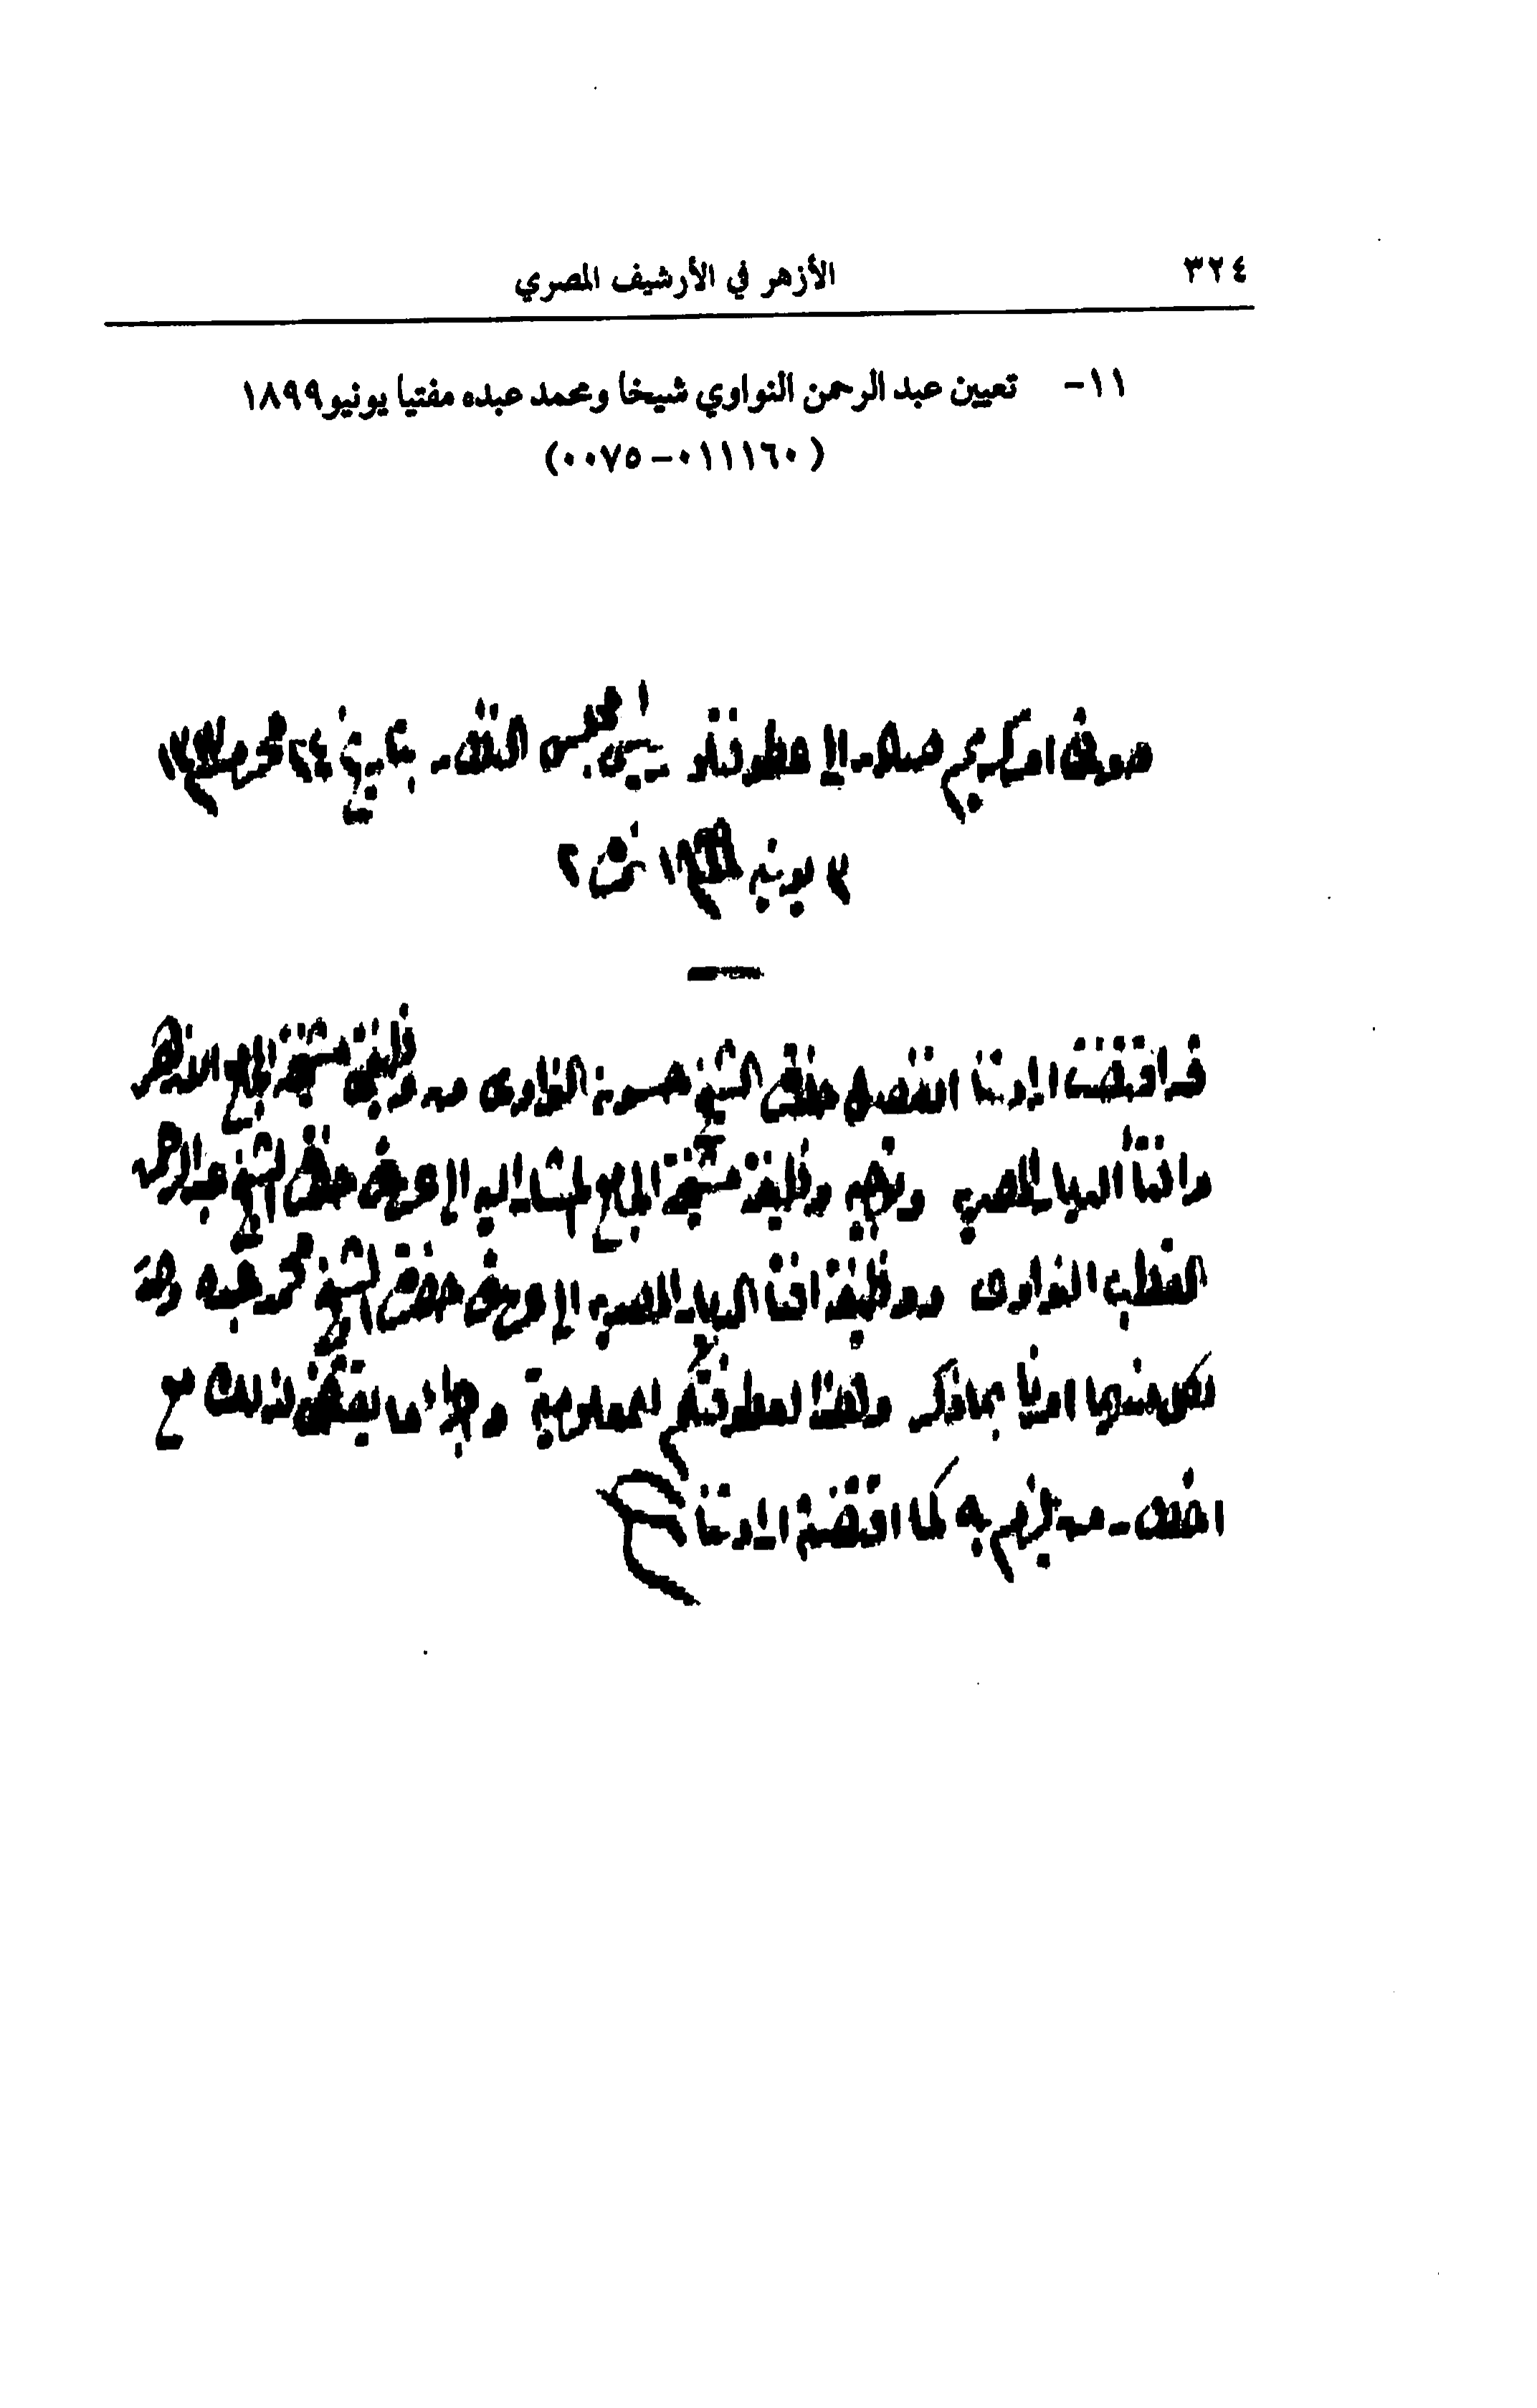 ٣٢٤ الأزهر في الأرشيف المصري
١١- تعيين عبد الرحمن النواوي شيخا ومحمد عبده مفتيا يونيو ١٨٩٩
(٠١١١٦٠-٠٠٧٥)
صورة امر كريم صادر الى عطوفتلو رئيس مجلس النظار بتاريخ ٢٤ محرم
٣ يونيه نمرة ٢
قد اقتضت ارادتنا فصل حضرة الشيخ حسونه النواوى من وظيفتى مشيخة الجامع الازهر
وافتاء الديار المصرية وتوجيه وظيفة مشيخة الجامع المشار اليه الى حضرة الشيخ عبد الرحمن
القطب النواوى ووظيفة افتاء الديار المصرية الى حضرة الشيخ محمد عبده
لكل منهما امرنا بما ذكر ولهذا لعطوفتكم للمعلومية واجراء ما يقتضى لذلك مع
اخطار من يلزم به كما اقتضته ارادتنا